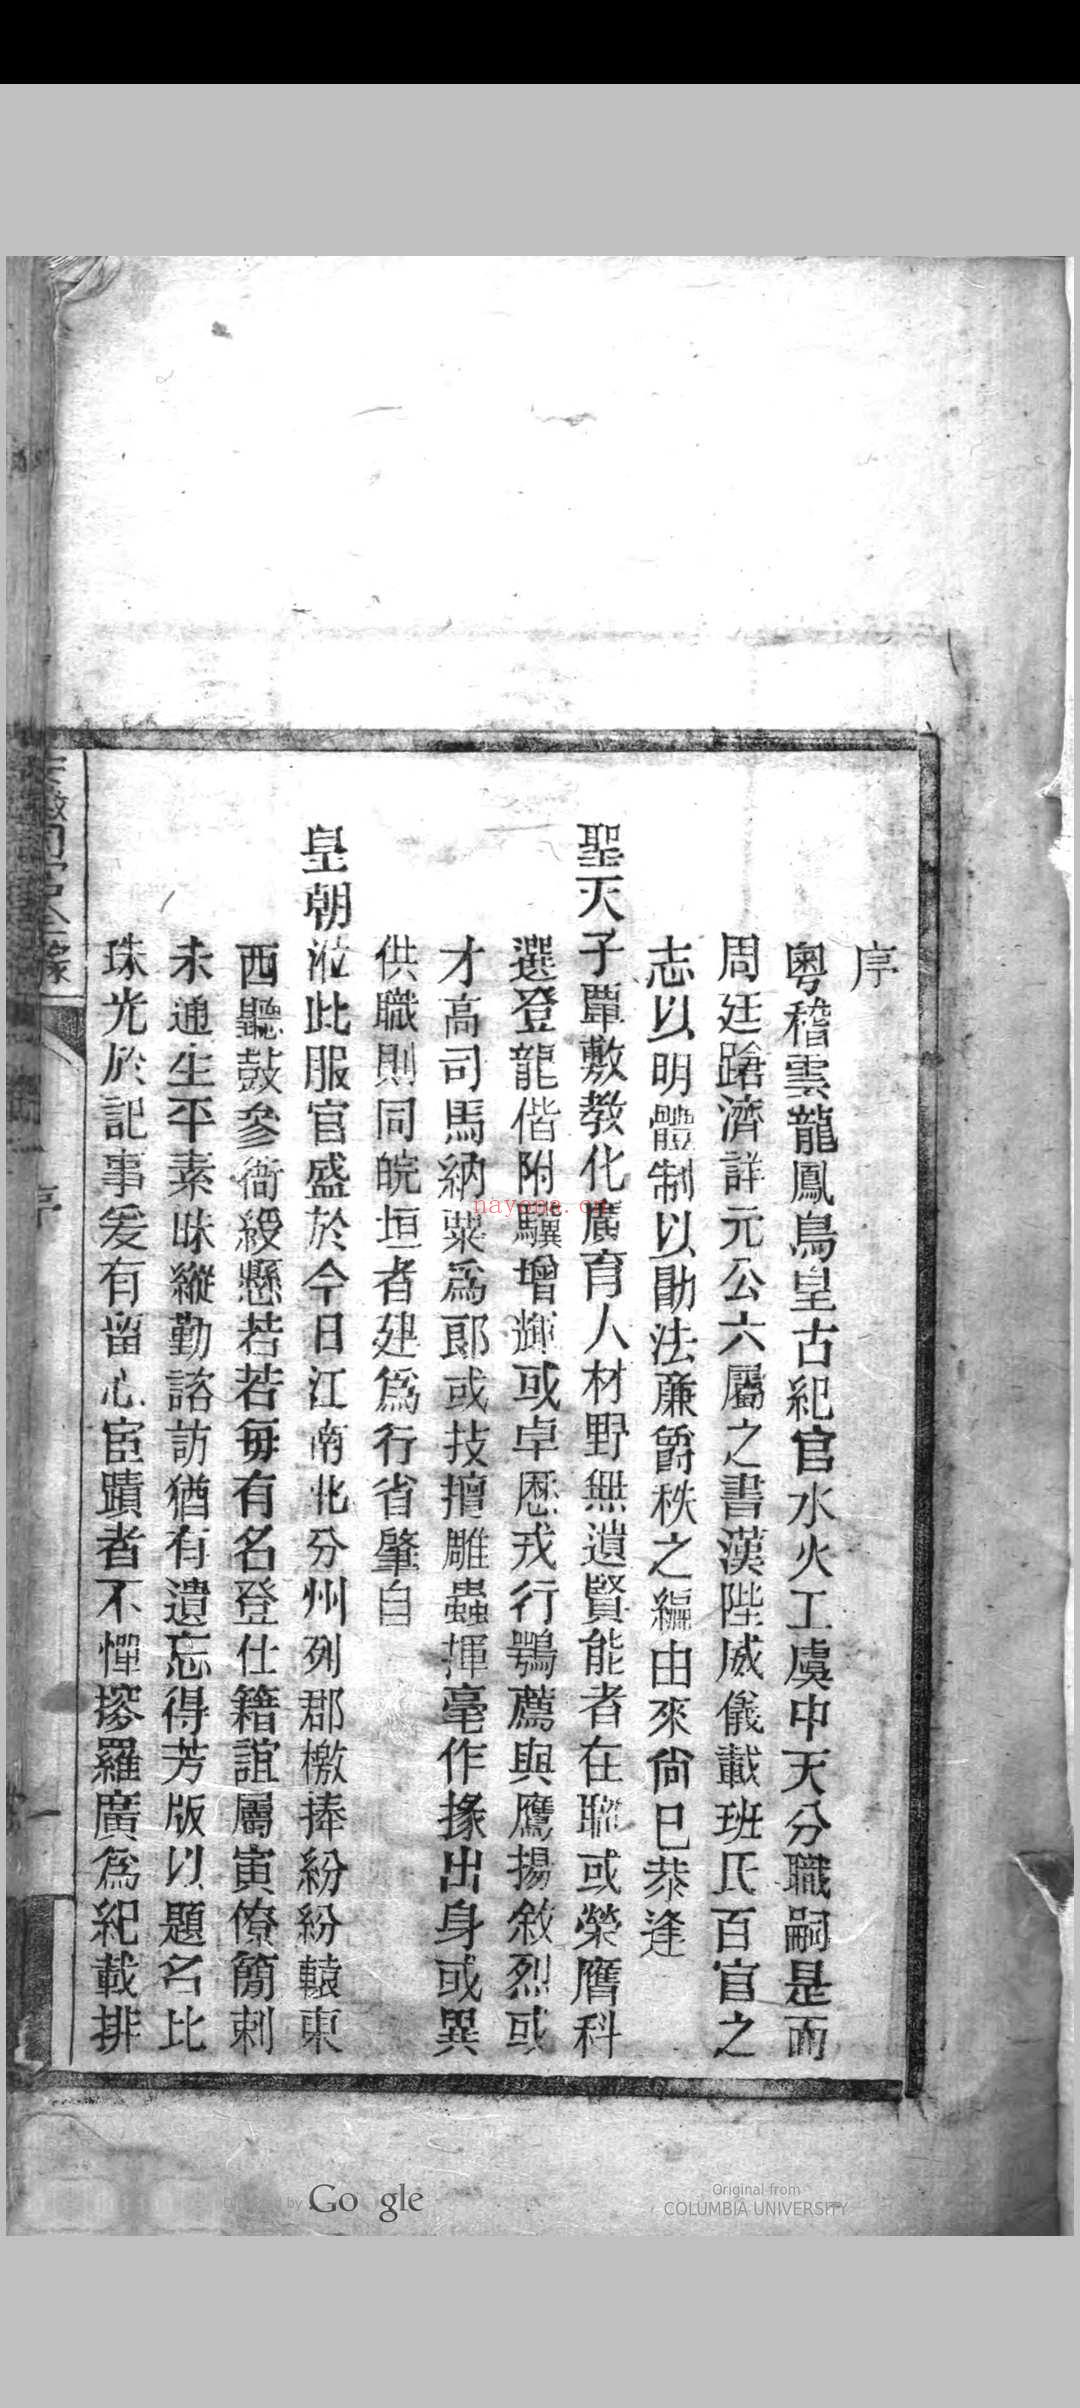 序
粤稽雲龍鳳鳥皇古紀官水火工虞中天分職嗣是而
周廷蹌濟詳元公六屬之書漢陛威儀載班氏百官之
志以明體制以勖法廉爵秩之編由來尙已恭逢
聖天子覃敷教化廣育人材野無遺賢能者在職或榮膺科
選登龍偕附驥增輝或卓歷戎行鶚薦與鷹揚敘烈或
才高司馬納粟爲郎或技擅雕蟲揮毫作掾出身或異
供職則同皖垣者建爲行省肇自
皇朝涖此服官盛於今日江南北分州列郡檄捧紛紛轅東
西聽鼓參衙綬懸若若每有名登仕籍誼屬寅僚簡刺
未通生平素昧縱勤諮訪猶有遺忘得芳版以題名比
珠光於記事爰有留心宦蹟者不憚搜羅廣爲紀載排
序
一
nayona.cn
Digitized by Google
Original from
COLUMBIA UNIVERSITY